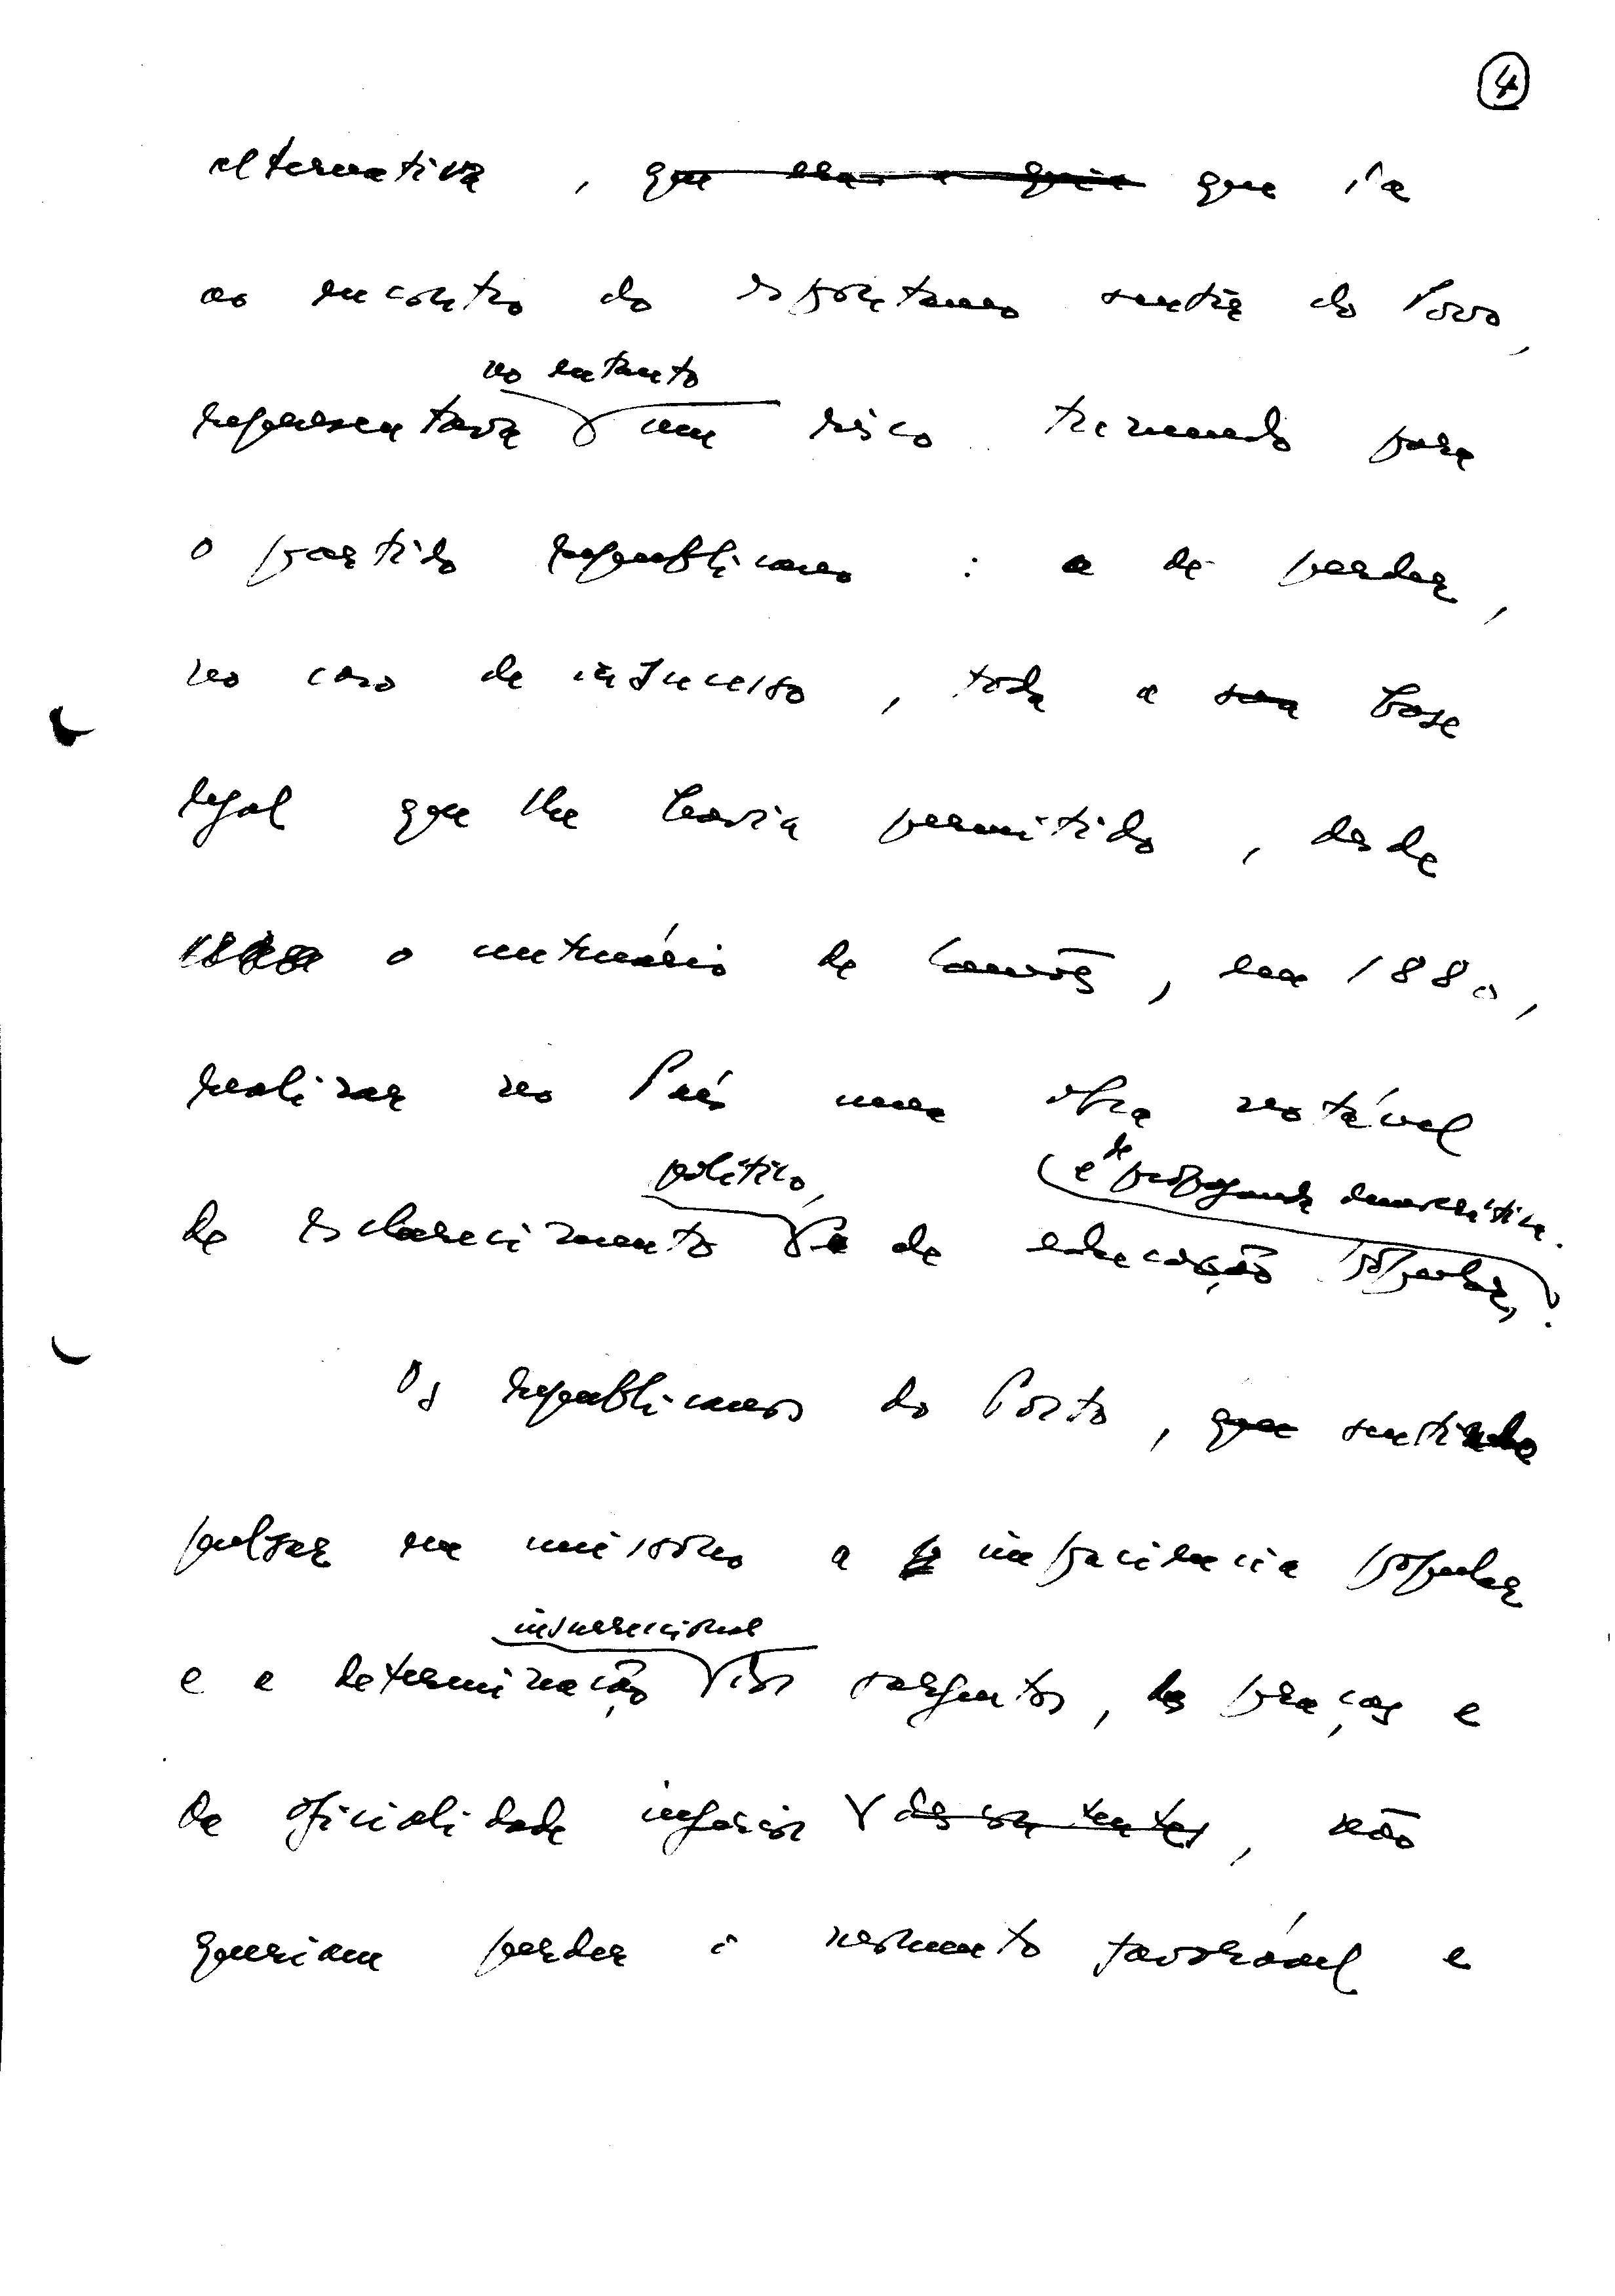 4
alternativa, que era a que ia
ao encontro do espontaneo sentir do Povo,
no entanto
representava um risco tremendo para
o partido republicano : o de perder,
no caso de insucesso, toda a sua base
legal que lhe havia permitido, desde
o centenário de Camões, em 1880,
realizar no País uma obra notável
político, e de propaganda democrática.
de esclarecimento e de educação popular,.
Os republicanos do Porto, que sentindo
pulsar em uníssono a impaciencia popular
insurreccional
e a determinação dos sargentos, das praças e
da oficialidade inferior descontentes, não
queriam perder o momento favorável e